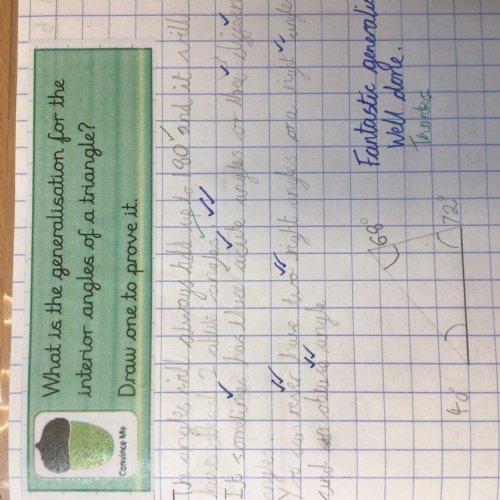 What is the generalisation for the
interior angles of a triangle?
Draw one to prove it.
Convince Me
angles will always add up to 180 and it will
have at least 2 acute angles
It sometimes has three acute angles or three different
angles.
You can never have two right angles or a right angle
and an obtuse angle
Fantastic
Well done.
Thanks
68°
72°
40°